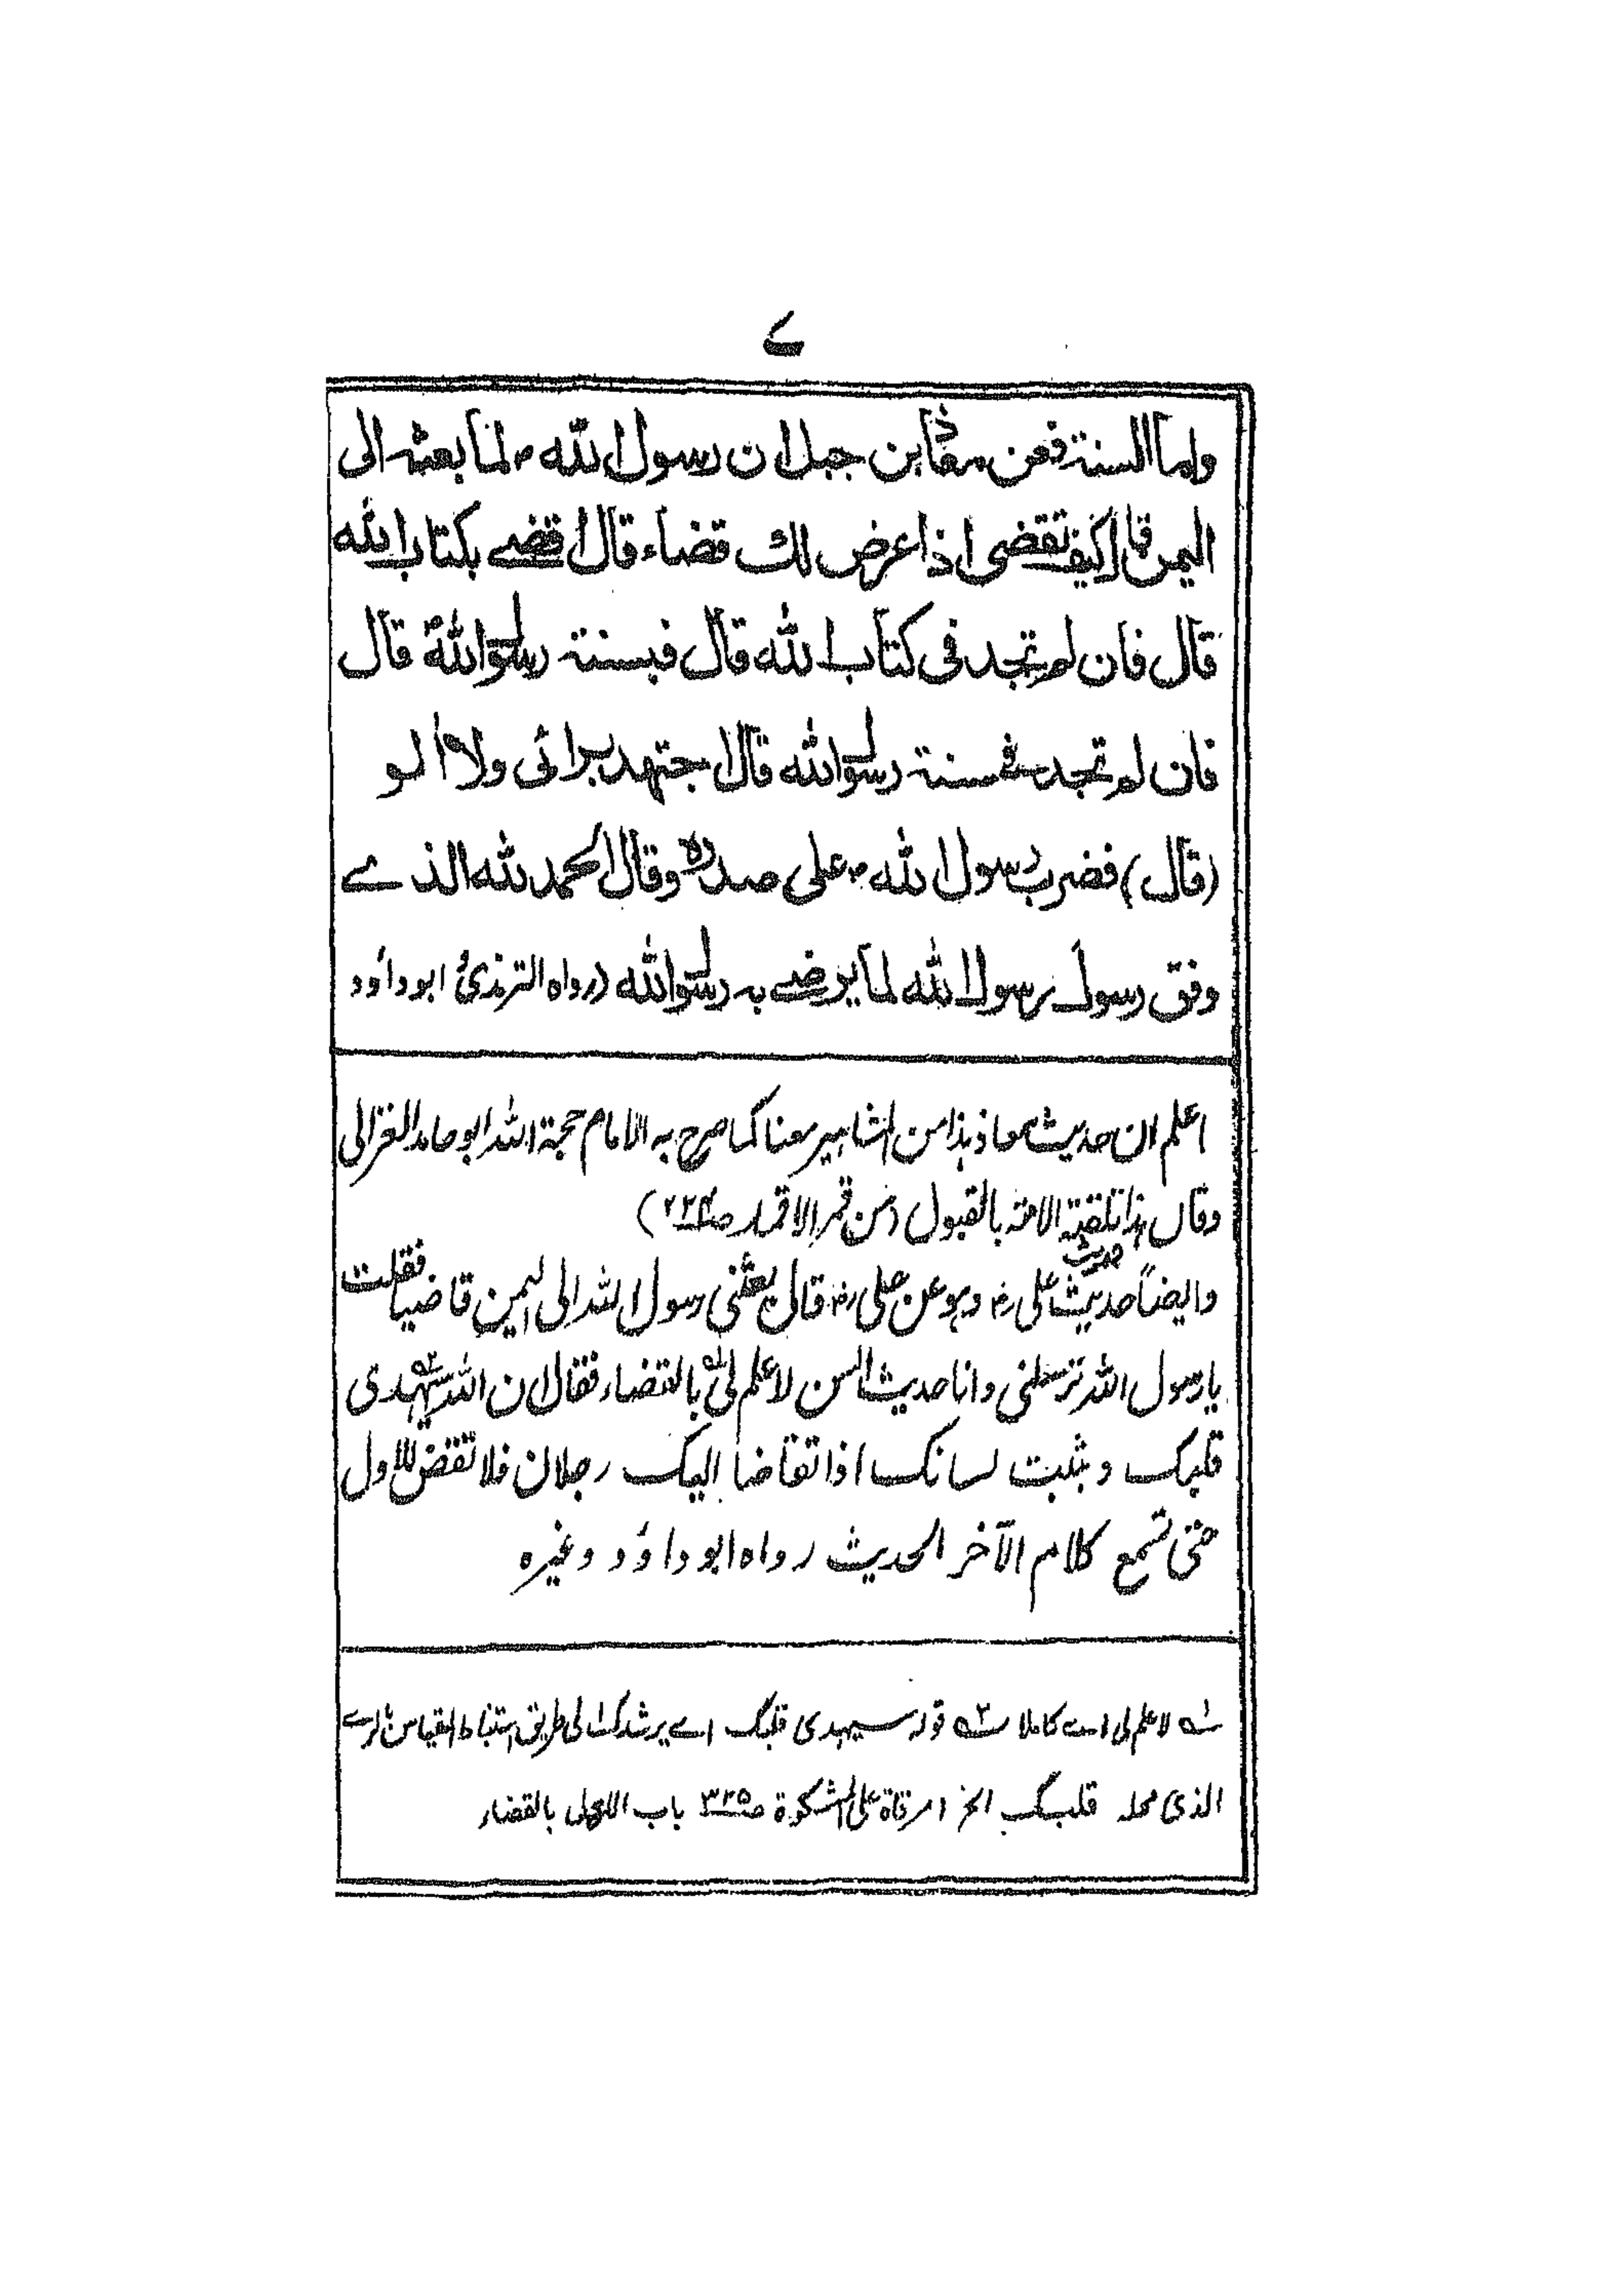 ۷
واما السنة فعن معاذ بن جبل ان رسول الله ؐ لما بعثه الى
اليمن قال كيف تقضى اذا عرض لك قضاء قال اقضے بكتاب الله
قال فان لم تجد فى كتاب الله قال فبسنة رسول اللهؐ قال
فان لم تجد فے سنة رسول الله قال اجتهد برائى ولا الو
(قال) فضرب رسول الله ؐ على صدره وقال الحمد لله الذے
وفق رسول رسول الله لما يرضے به رسول الله (رواه الترمذىؒ ابو داؤد
اعلم ان حديث معاذ ہذا من المشاہير معنا كما صرح به الامام حجة الله ابو حامد الغزالى
وقال ہذا تلقته الامة بالقبول (من قمر الاقمار صـ۲۲۴)
وايضاً حديث على رضـ وہو عن على رضـ قال بعثنى رسول الله الى اليمن قاضيا فقلت
يا رسول الله ترسلنى وانا حديث السن لا علم لى بالقضاء فقال ان الله سيہدى
قلبك ويثبت لسانك اذا تقاضا اليك رجلان فلا تقض للاول
حتى تسمع كلام الآخر الحديث رواه ابو داؤد وغيره
۱ـه لا علم لى اے كاملا ۲ـه قوله سيہدى قلبك اے يرشدك الى طريق استنباط القياس بالراے
الذى محله قلبك الخ (مرقاة على المشكوة صـ۳۲۵ باب العمل بالقضاء